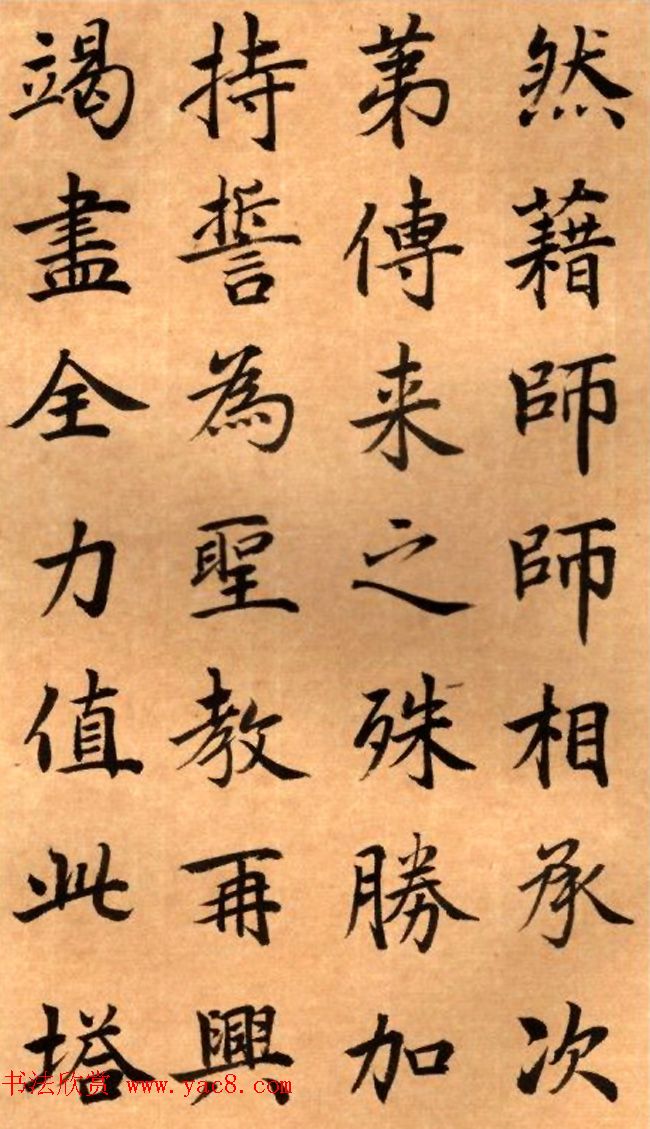 然藉師師相承次
苐傳来之殊勝加
持誓為聖教再興
竭盡全力值此塔
书法欣赏 www.yac8.com